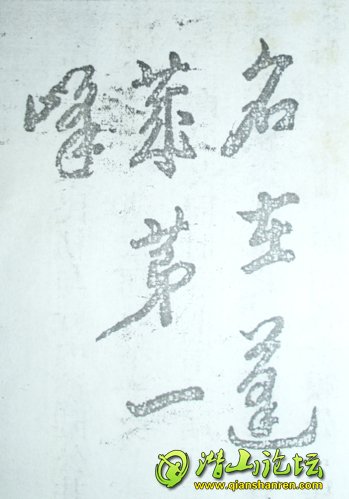 名在蓬
莱第一
峰
潜山论坛
www.qianshanren.com